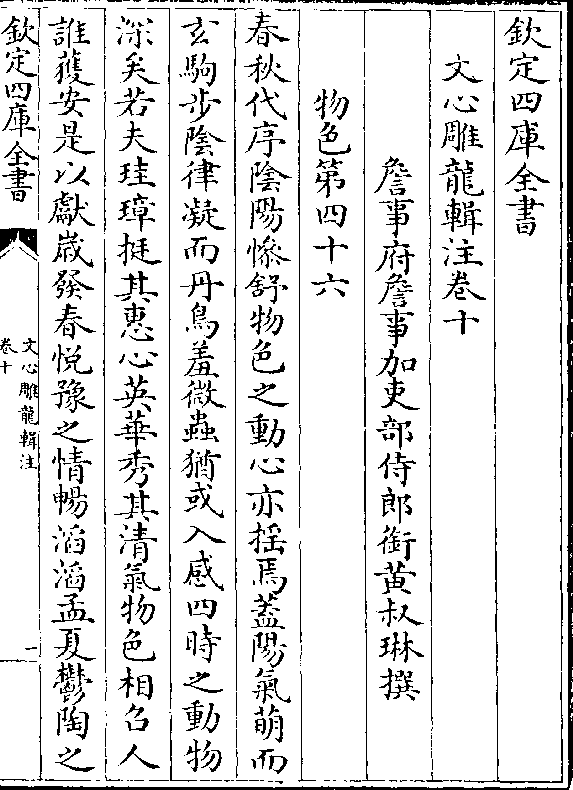 欽定四庫全書
文心雕龍輯注卷十
詹事府詹事加吏部侍郎銜黃叔琳撰
物色第四十六
春秋代序陰陽慘舒物色之動心亦揺焉蓋陽氣萌而
玄駒步陰律凝而丹鳥羞微蟲猶或入感四時之動物
深矣若夫珪璋挺其惠心英華秀其清氣物色相召人
誰獲安是以獻歲發春悅豫之情暢滔滔孟夏鬱陶之
欽定四庫全書
文心雕龍輯注
卷十
一